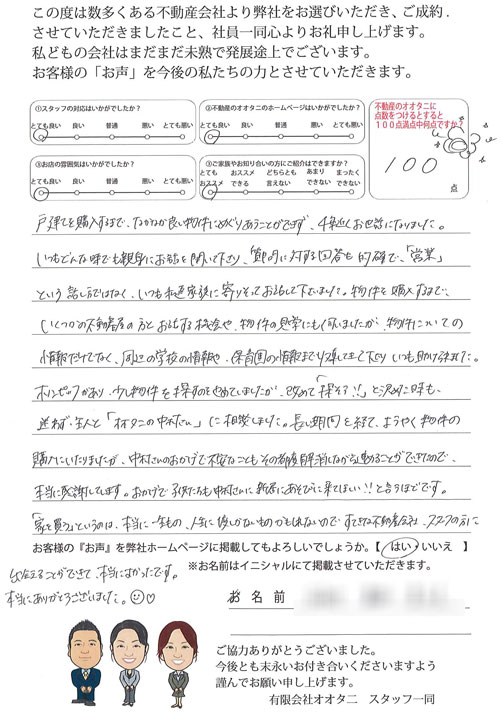 この度は数多くある不動産会社より弊社をお選びいただき、ご成約.
させていただきましたこと、社員一同心よりお礼申し上げます。
私どもの会社はまだまだ未熟で発展途上でございます。
お客様の「お声」を今後の私たちの力とさせていただきます。
①スタッフの対応はいかがでしたか？
とても良い 良い 普通 悪い とても悪い
②不動産のオオタニのホームページはいかがでしたか？
とても良い 良い 普通 悪い とても悪い
不動産のオオタニに
点数をつけるとすると
１００点満点中何点ですか？
100
点
③お店の雰囲気はいかがでしたか？
とても良い 良い 普通 悪い とても悪い
③ご家族やお知り合いの方にご紹介はできますか？
とてもおススメ おススメできる どちらとも言えない あまりできない まったくできない
戸建てを購入するまで、なかなか良い物件にめぐりあうことができず、4年近くお世話になりました。
いつもどんな時でも親身にお話を聞いて下さり、質問に対する回答も的確で、「営業」
という感じではなく、いつも私達家族に寄りそってお話して下さいました。物件を購入するまで、
いくつかの不動産屋の方とお話する機会や、物件の見学にも行いましたが、物件についての
情報だけでなく、周辺の学校の情報や、保育園の情報まで
いつも助けられました。
物件を探すのをやめていましたが、改めて「探そう!!」と決めた時も、
迷わず、主人と「オオタニの中村さん」に相談しました。長い期間を経て、ようやく物件の
購入にいたりましたが、中村さんのおかげで不安なこともその都度解消しながら進めることができたので、
本当に感謝しています。おかげで子供たちも中村さんに新居にあそびに来てほしい!!と言うほどです。
「家を買う」というのは、本当に一生もの、人生に一度しかないものかもしれないので すてきな不動産会社、スタッフの方に
お客様の『お声』を弊社ホームページに掲載してもよろしいでしょうか。【 はい・いいえ 】
出会えることができて、本当によかったです。
※お名前はイニシャルにて掲載させていただきます。
本当にありがとうございました。
お 名 前
ご協力ありがとうございました。
今後とも末永いお付き合いくださいますよう
謹んでお願い申し上げます。
有限会社オオタニ スタッフ一同